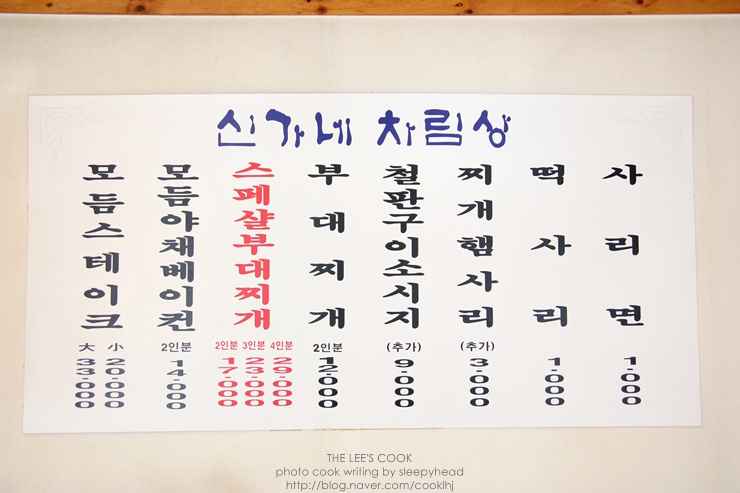 신가네 차림상
모듬스테이크
大 小
33.000 20.000
모듬야채베이컨
2인분
14.000
스페샬부대찌개
2인분 3인분 4인분
17.000 23.000 29.000
부대찌개
2인분
12.000
철판구이소시지
(추가)
9.000
찌개햄사리
(추가)
3.000
떡사리
1.000
사리면
1.000
THE LEE'S COOK
photo cook writing by sleepyhead
http://blog.naver.com/cooklhj